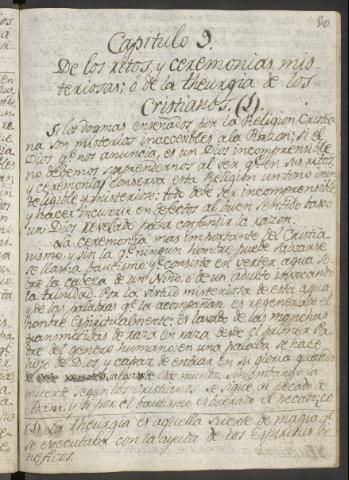 80
Capitulo 9.
De los ritos, y ceremonias mis-
teriosas; ó de la theurgia de los
Cristianos. (1).
Si los dogmas enseñados por la Religion Cristia
na son misterios inaccesibles a la Razon; si el
Dios qe nos anuncia, es un Dios incomprensible
no debemos sorprendernos al ver qe en sus ritos,
y ceremonias conserva esta Religion un tono inin-
teligible y misterioso: todo debe ser incomprensible
y hacer incurrir en defectos al buen sentido baxo
un Dios revelado para confundir la razon.
La ceremonia mas importante del Cristia-
nismo, y sin la qe ningun hombre puede salvarse
se llama bautismo y consiste en verter agua so-
bre la cabeza de un Niño, o de un adulto invocando
la trinidad. Por la virtud misteriosa de esta agua,
y de las palabras qe la acompañan es regenerado el
hombre Espiritualmente, es lavado de las manchas
transmitidas de raza en raza desde el primer Pa-
dre del genero humano: en una palabra se hace
hijo de Dios y capaz de entrar en su gloria quando
salga de este mundo.
muerte segun los Cristianos se sigue al pecado de
Adam, si por el bautismo es borrado el pecado,
(1) La theurgia es aquella suerte de magia qe
se executaba con la ayuda de los Espiritus be-
neficos.